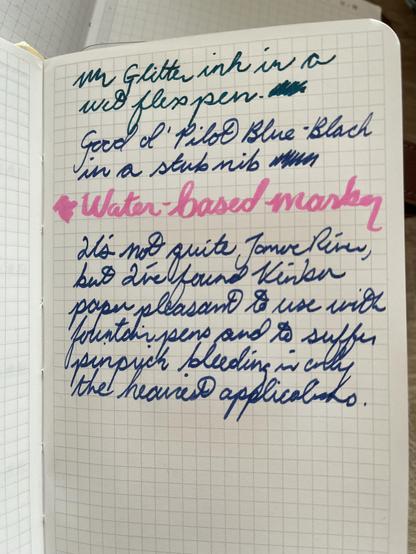 Mr Glitter ink in a
wet flex pen.
Good ol' Pilot Blue-Black
in a stub nib
Water-based marker
It's not quite River,
but I've found
paper pleasant to use with
fountain pens and to suffer
bleeding in only
the heaviest applications.